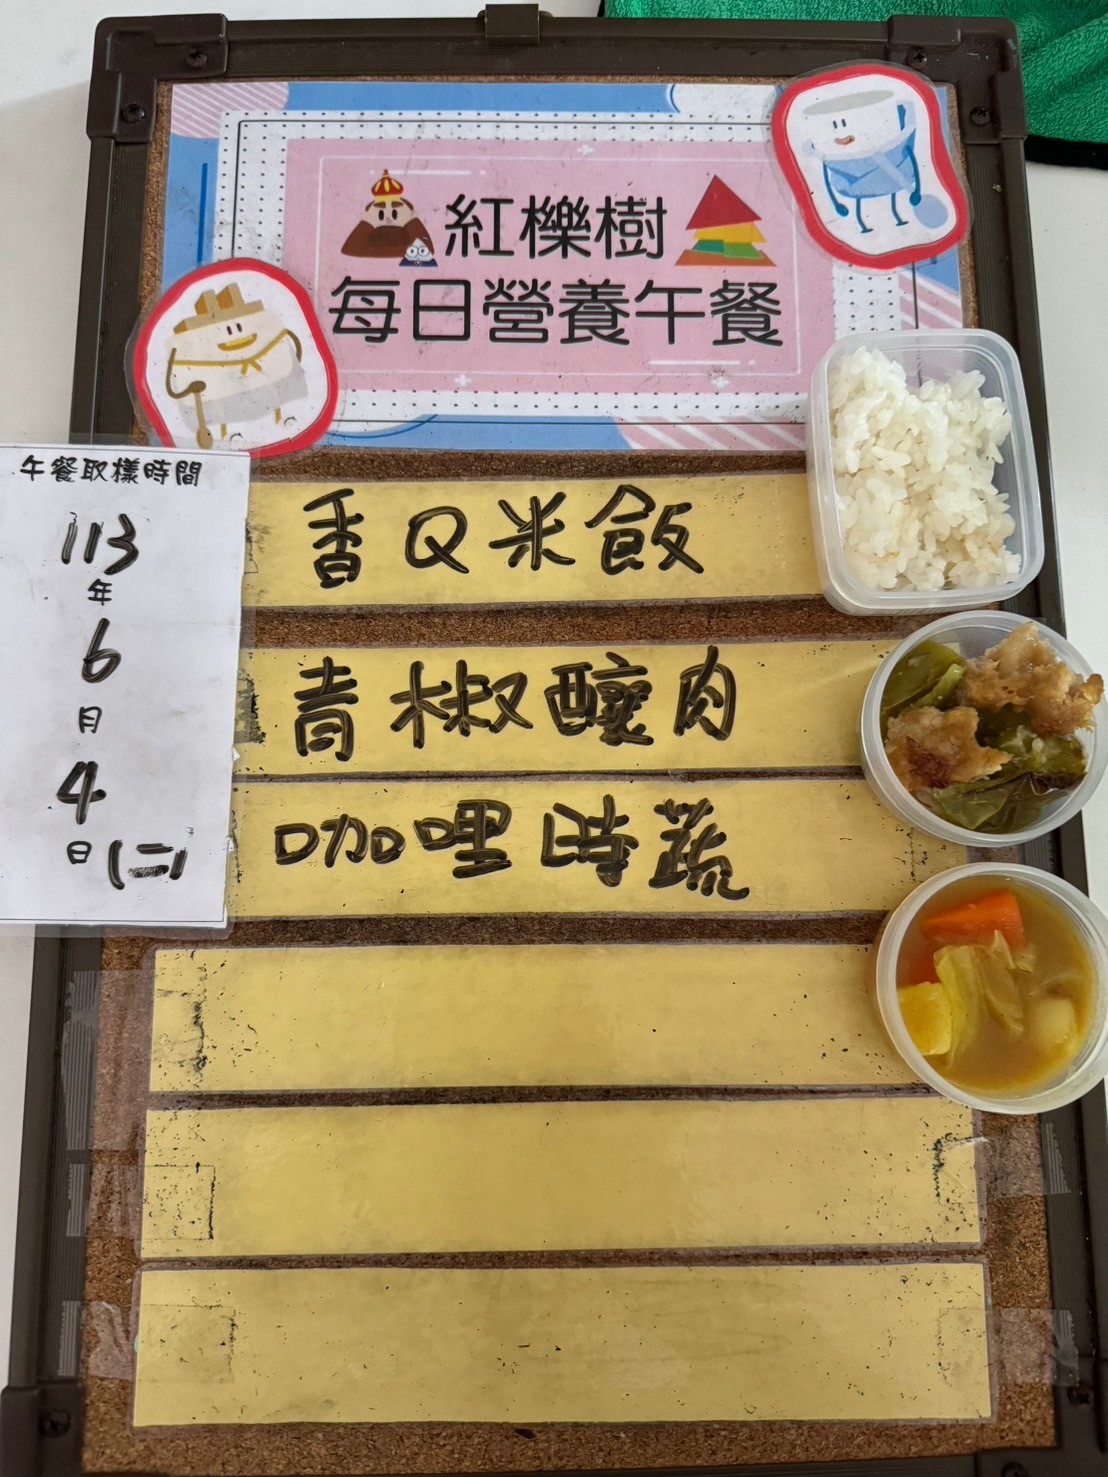 紅櫟樹
每日營養午餐
午餐取樣時間
113
年
6
月
4
日(二)
香Q米飯
青椒釀肉
咖哩時蔬